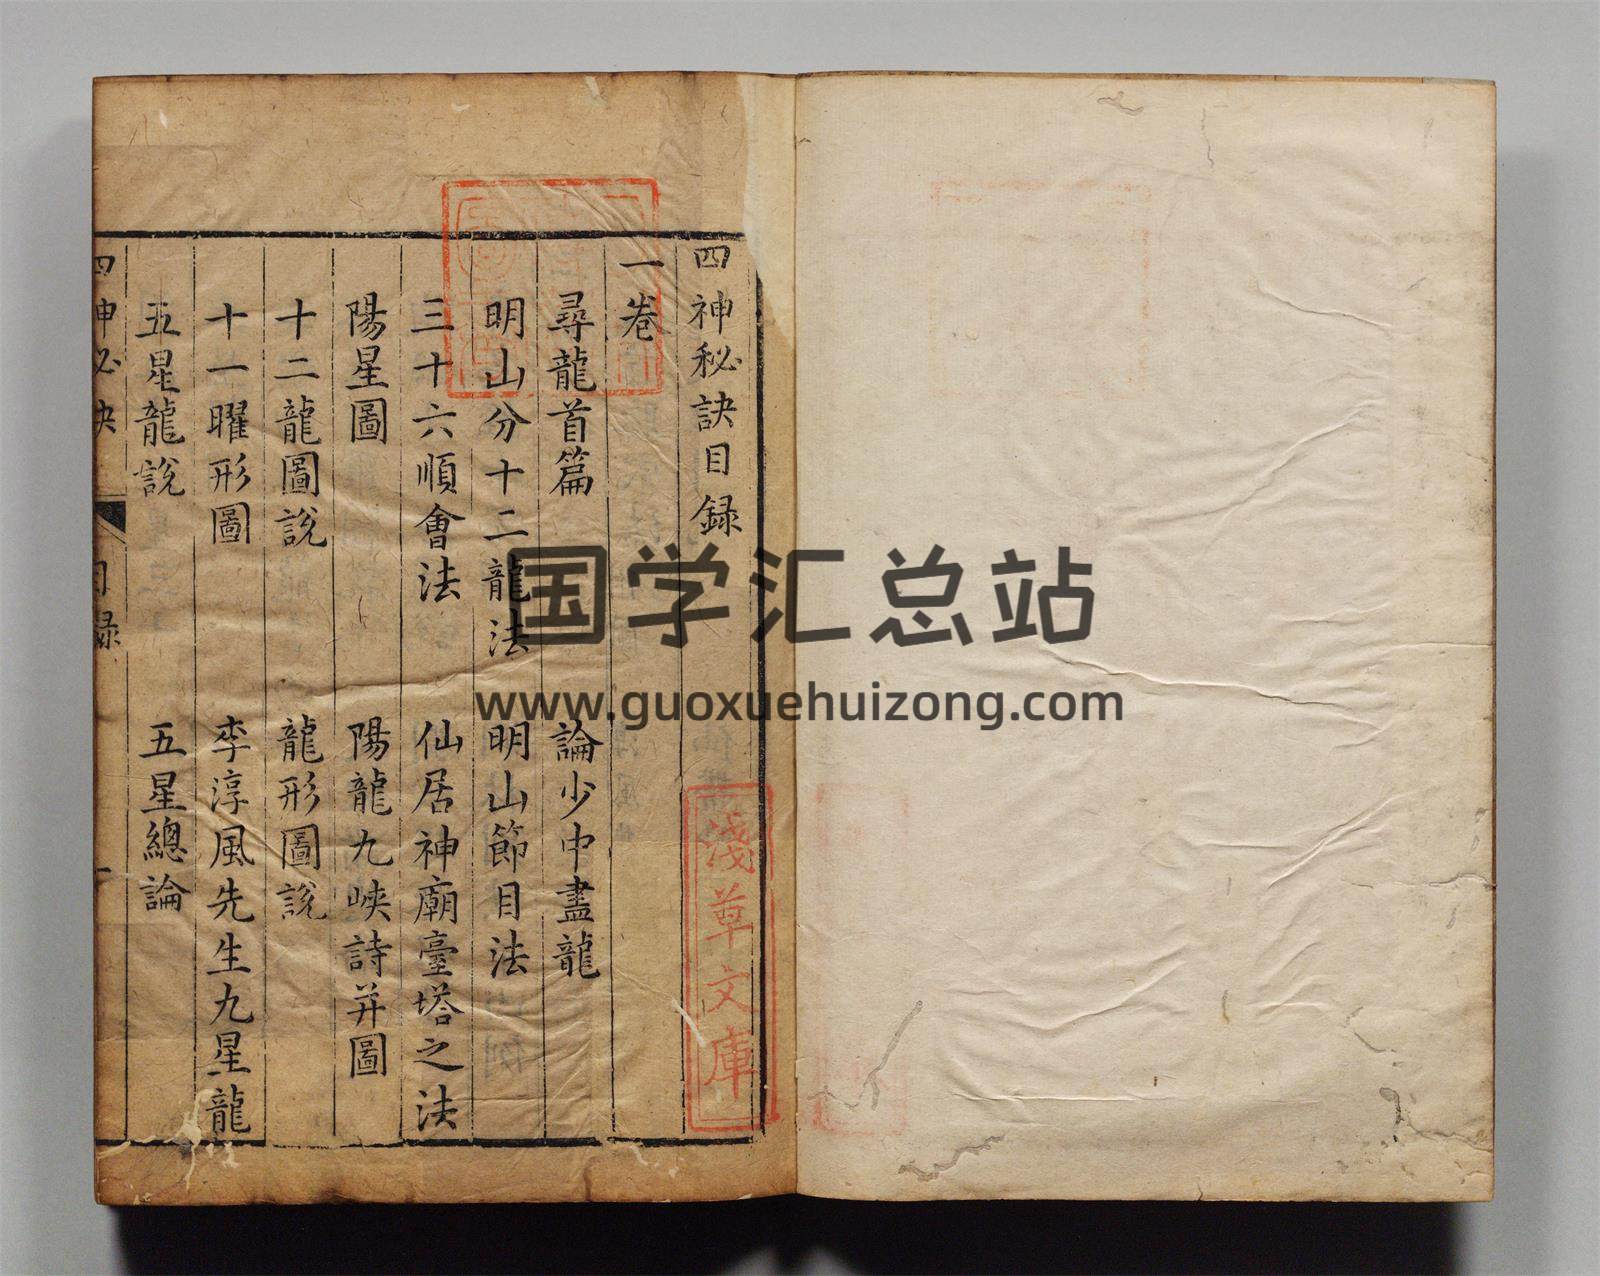 四神秘訣目録
一卷
尋龍首篇 論少中盡龍
明山分十二龍法 明山節目法
三十六順會法 仙居神廟臺塔之法
陽星圖 陽龍九峽詩并圖
十二龍圖說 龍形圖說
十一曜形圖 李淳風先生九星龍
五星龍說 五星總論
四神必決 目録 一
淺草文庫
国学汇总站
www.guoxuehuizong.com